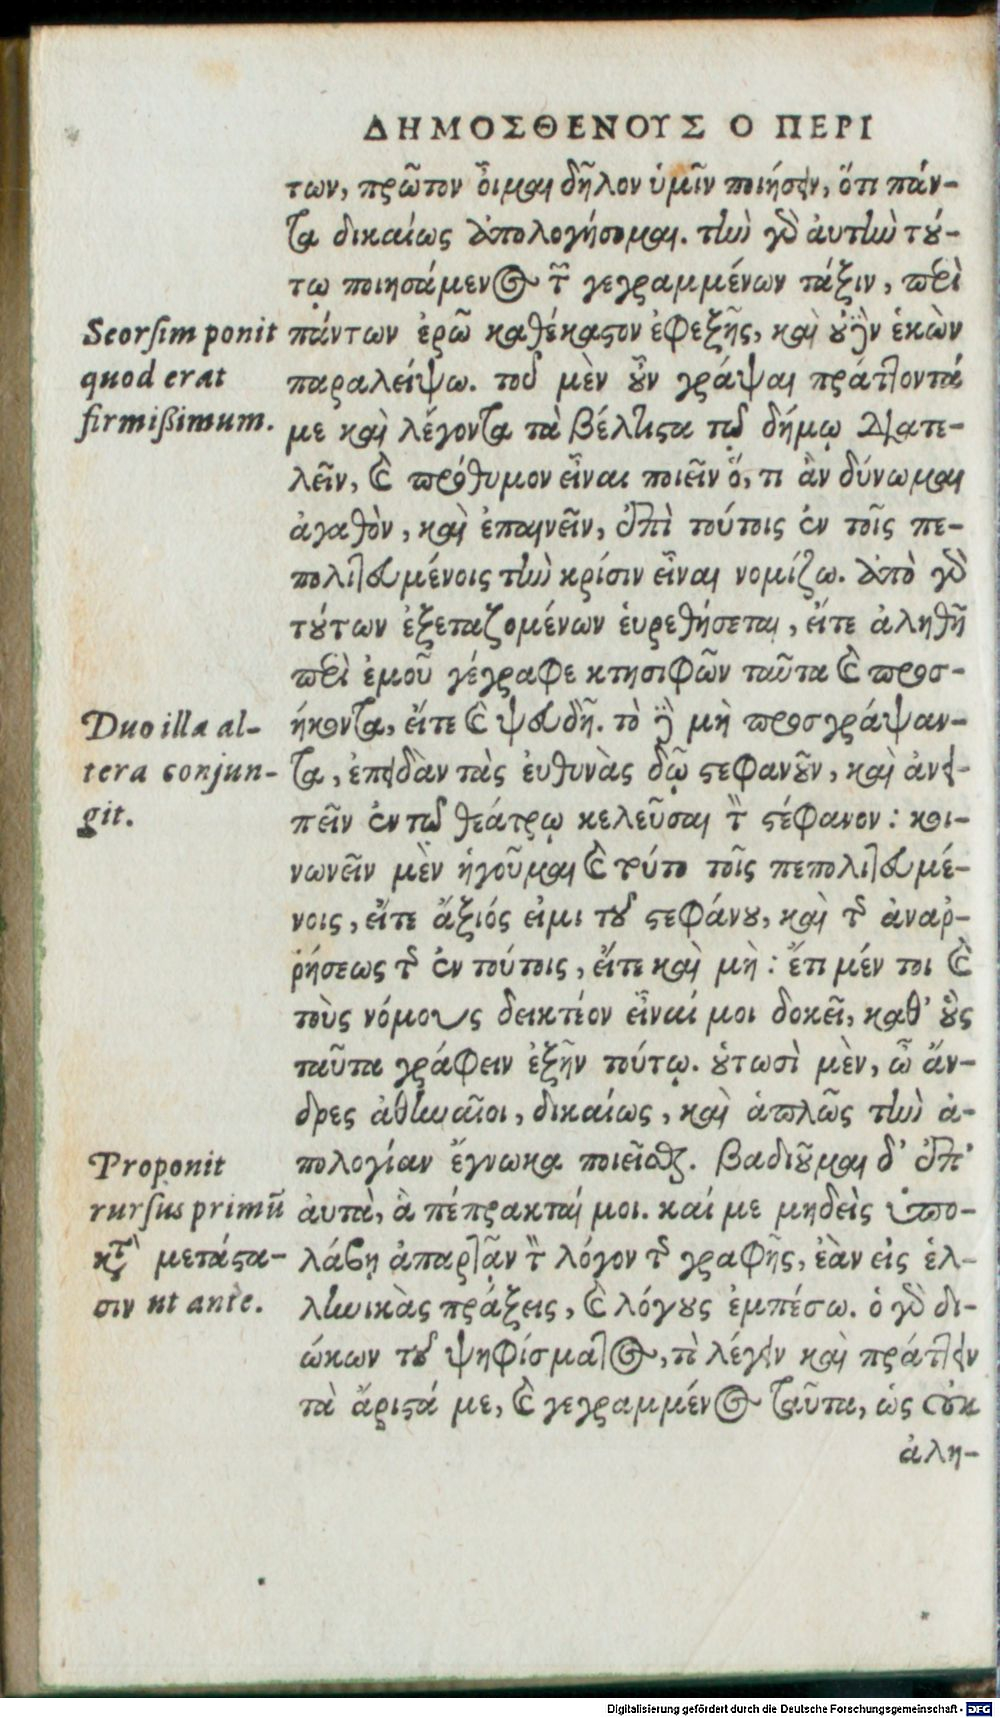 ΔΗΜΟΣΘΕΝΟΥΣ Ο ΠΕΡΙ
των, πρῶτον οἶμαι δῆλον ὑμῖν ποιήσειν, ὅτι πάν-
τα δικαίως ἀπολογήσομαι. τὴν γὸ ἀυτὴν τού-
τῳ ποιησάμενος τ γεγραμμένων τάξιν, περὶ
πάντων ἐρῶ καθέκαστον ἐφεξῆς, καὶ οὐδὲν ἑκὼν
παραλείψω. τοῦ μὲν οὖν γράψαι πράττοντά
με καὶ λέγοντα τὰ βέλτιστα τῷ δήμῳ διατε-
λεῖν, καὶ πρόθυμον εἶναι ποιεῖν ὅ, τι ἂν δύνωμαι
ἀγαθὸν, καὶ ἐπαινεῖν, ἐπὶ τούτοις ἐν τοῖς πε-
πολιτευμένοις τὴν κρίσιν εἶναι νομίζω. ἀπὸ γὸ
τούτων ἐξεταζομένων εὑρεθήσεται, εἴτε ἀληθῆ
περὶ ἐμοῦ γέγραφε κτησιφῶν ταῦτα καὶ προσ-
ήκοντα, εἴτε καὶ ψευδῆ. τὸ δὲ μὴ προσγράψαν-
τα, ἐπειδὰν τὰς εὐθυνὰς δῷ στεφανοῦν, καὶ ἀνει-
πεῖν ἐν τῷ θεάτρῳ κελεῦσαι τ στέφανον: κοι-
νωνεῖν μὲν ἡγοῦμαι καὶ τοῦτο τοῖς πεπολιτευμέ-
νοις, εἴτε ἄξιός εἰμι τοῦ στεφάνου, καὶ τ ἀναῤ-
ῥήσεως τ ἐν τούτοις, εἴτε καὶ μὴ: ἔτι μέν τοι καὶ
τοὺς νόμους δεικτέον εἶναί μοι δοκεῖ, καθ' οὓς
ταῦτα γράφειν ἐξῆν τούτῳ. οὑτωσὶ μὲν, ὦ ἄν-
δρες ἀθηναῖοι, δικαίως, καὶ ἁπλῶς τὴν ἀ-
πολογίαν ἔγνωκα ποιεῖσθαι. βαδιοῦμαι δ' ἐπ'
αὐτὰ, ἃ πέπρακταί μοι. καί με μηδεὶς ὑπο-
λάβῃ ἀπαρτᾷν τ λόγον τ γραφῆς, ἐὰν εἰς ἑλ-
ληνικὰς πράξεις, καὶ λόγους ἐμπέσω. ὁ γὸ δι-
ώκων τοῦ ψηφίσματος, τὸ λέγειν καὶ πράττειν
τὰ ἄριστά με, καὶ γεγραμμένος ταῦτα, ὡς οὐκ
ἀλη-
Seorsim ponit
quod erat
firmißimum.
Duo illa al-
tera conjun-
git.
Proponit
rursus primū
κτ μετάστα-
σιν ut ante.
Digitalisierung gefördert durch die Deutsche Forschungsgemeinschaft - DFG